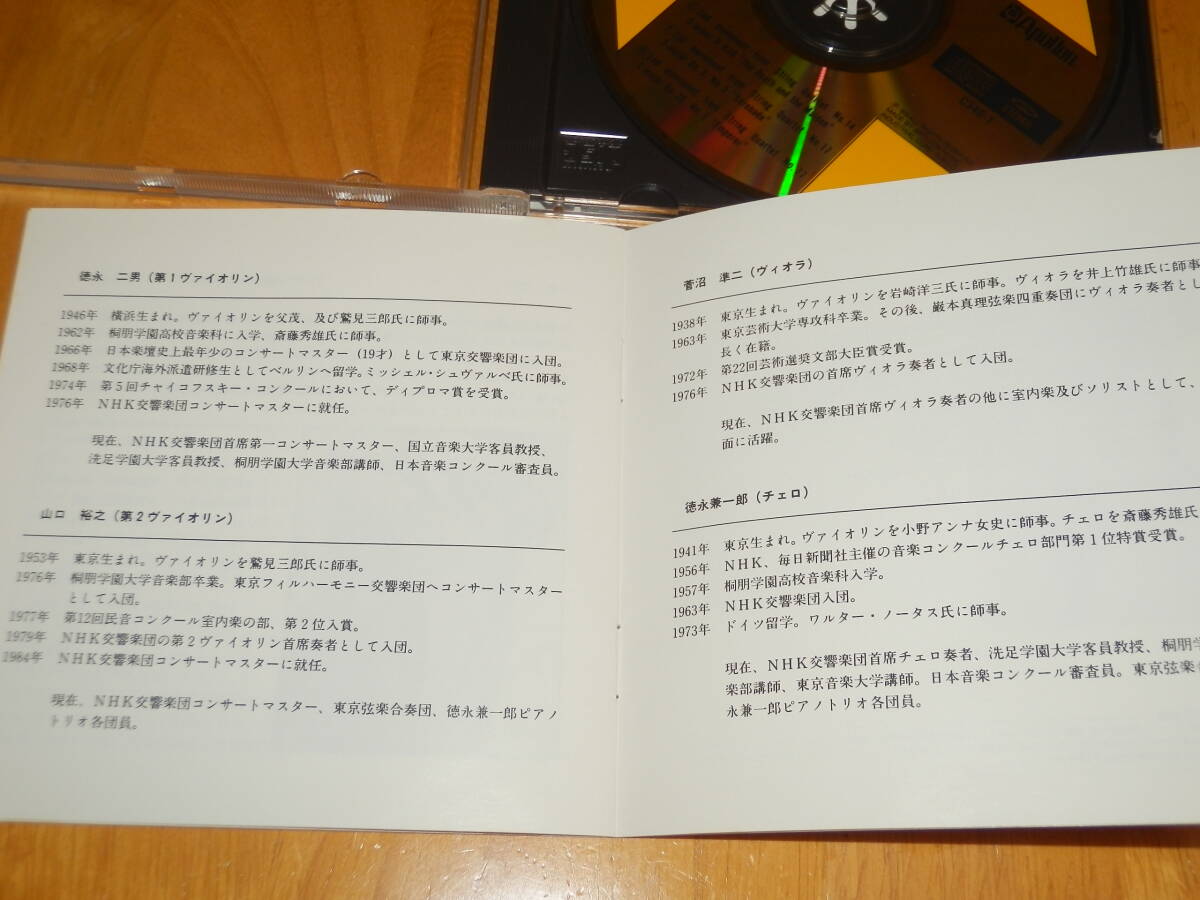 徳永　二男（第1ヴァイオリン）
1946年　横浜生まれ。ヴァイオリンを父茂、及び鷲見三郎氏に師事。
1962年　桐朋学園高校音楽科に入学、斎藤秀雄氏に師事。
1966年　日本楽壇史上最年少のコンサートマスター（19才）として東京交響楽団に入団。
1968年　文化庁海外派遣研修生としてベルリンへ留学。ミッシェル・シュヴァルベ氏に師事。
1974年　第5回チャイコフスキー・コンクールにおいて、ディプロマ賞を受賞。
1976年　NHK交響楽団コンサートマスターに就任。
現在、NHK交響楽団首席第一コンサートマスター、国立音楽大学客員教授、
洗足学園大学客員教授、桐朋学園大学音楽部講師、日本音楽コンクール審査員。
山口　裕之（第2ヴァイオリン）
1953年　東京生まれ。ヴァイオリンを鷲見三郎氏に師事。
1976年　桐朋学園大学音楽部卒業。東京フィルハーモニー交響楽団へコンサートマスター
として入団。
1977年　第12回民音コンクール室内楽の部、第2位入賞。
1979年　NHK交響楽団の第2ヴァイオリン首席奏者として入団。
1984年　NHK交響楽団コンサートマスターに就任。
現在、NHK交響楽団コンサートマスター、東京弦楽合奏団、徳永兼一郎ピアノ
トリオ各団員。
菅沼　準二（ヴィオラ）
1938年　東京生まれ。ヴァイオリンを岩崎洋三氏に師事。ヴィオラを井上竹雄氏に師事
1963年　東京芸術大学専攻科卒業。その後、巌本真理弦楽四重奏団にヴィオラ奏者とし
長く在籍。
1972年　第22回芸術選奨文部大臣賞受賞。
1976年　NHK交響楽団の首席ヴィオラ奏者として入団。
現在、NHK交響楽団首席ヴィオラ奏者の他に室内楽及びソリストとして、
面に活躍。
徳永兼一郎（チェロ）
1941年　東京生まれ。ヴァイオリンを小野アンナ女史に師事。チェロを斎藤秀雄氏
1956年　NHK、毎日新聞社主催の音楽コンクールチェロ部門第1位特賞受賞。
1957年　桐朋学園高校音楽科入学。
1963年　NHK交響楽団入団。
1973年　ドイツ留学。ワルター・ノータス氏に師事。
現在、NHK交響楽団首席チェロ奏者、洗足学園大学客員教授、桐朋学
楽部講師、東京音楽大学講師。日本音楽コンクール審査員。東京弦楽
永兼一郎ピアノトリオ各団員。